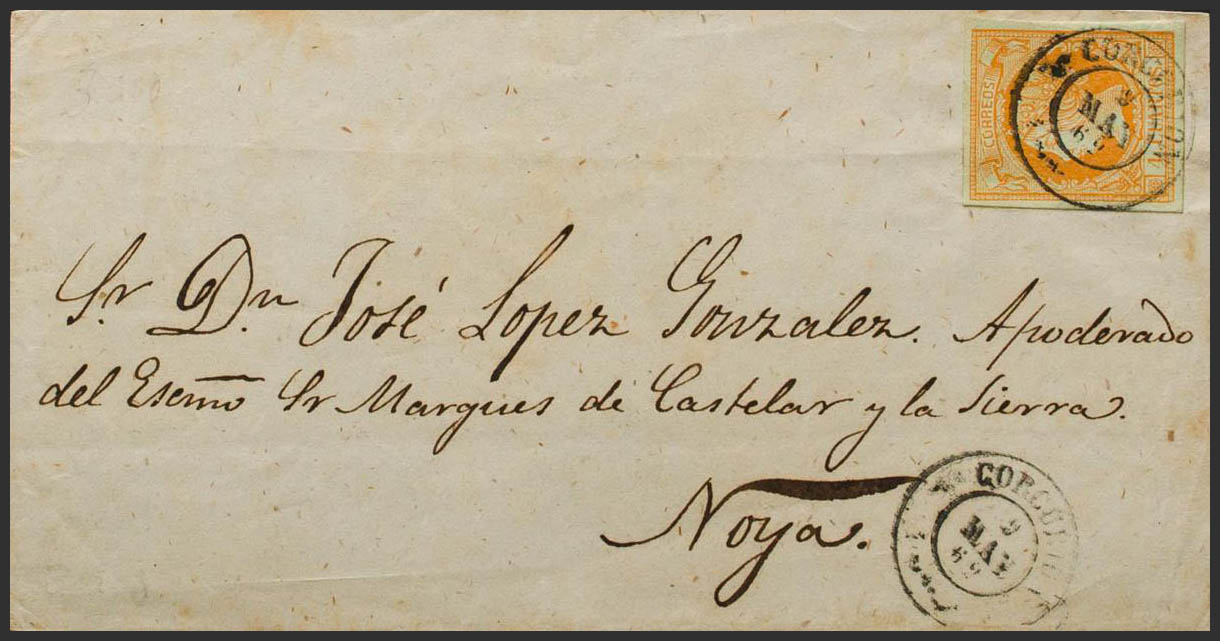 CORREOS
CORCUBION
9
MAR
62
Sr. Dn. José Lopez Gonzalez. Apoderado
del Escmo Sr Marques de Castelar y la Sierra.
Noya.
9
MAR
62